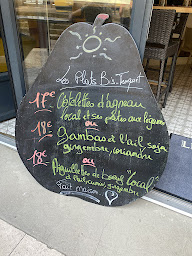 Les Plats Bis.Tonquet
17€ Côtelettes d'agneau
local et ses pâtes aux légumes
ou
18€ Gambas à l'ail, soja
gingembre, coriandre
ou
18€ Aiguillettes de boeuf "local"
gingembre
fait maison